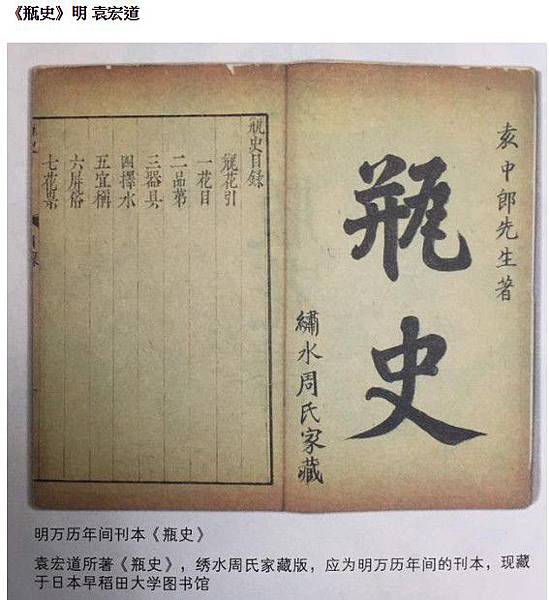 《瓶史》明 袁宏道
袁中郎先生著
瓶史
繡水周氏家藏
瓶史目録
瓶花引
一花目
二品第
三器具
四擇水
五宜稱
六屏俗
七花祟
明万历年间刊本《瓶史》
袁宏道所著《瓶史》，绣水周氏家藏版，应为明万历年间的刊本，现藏
于日本早稻田大学图书馆